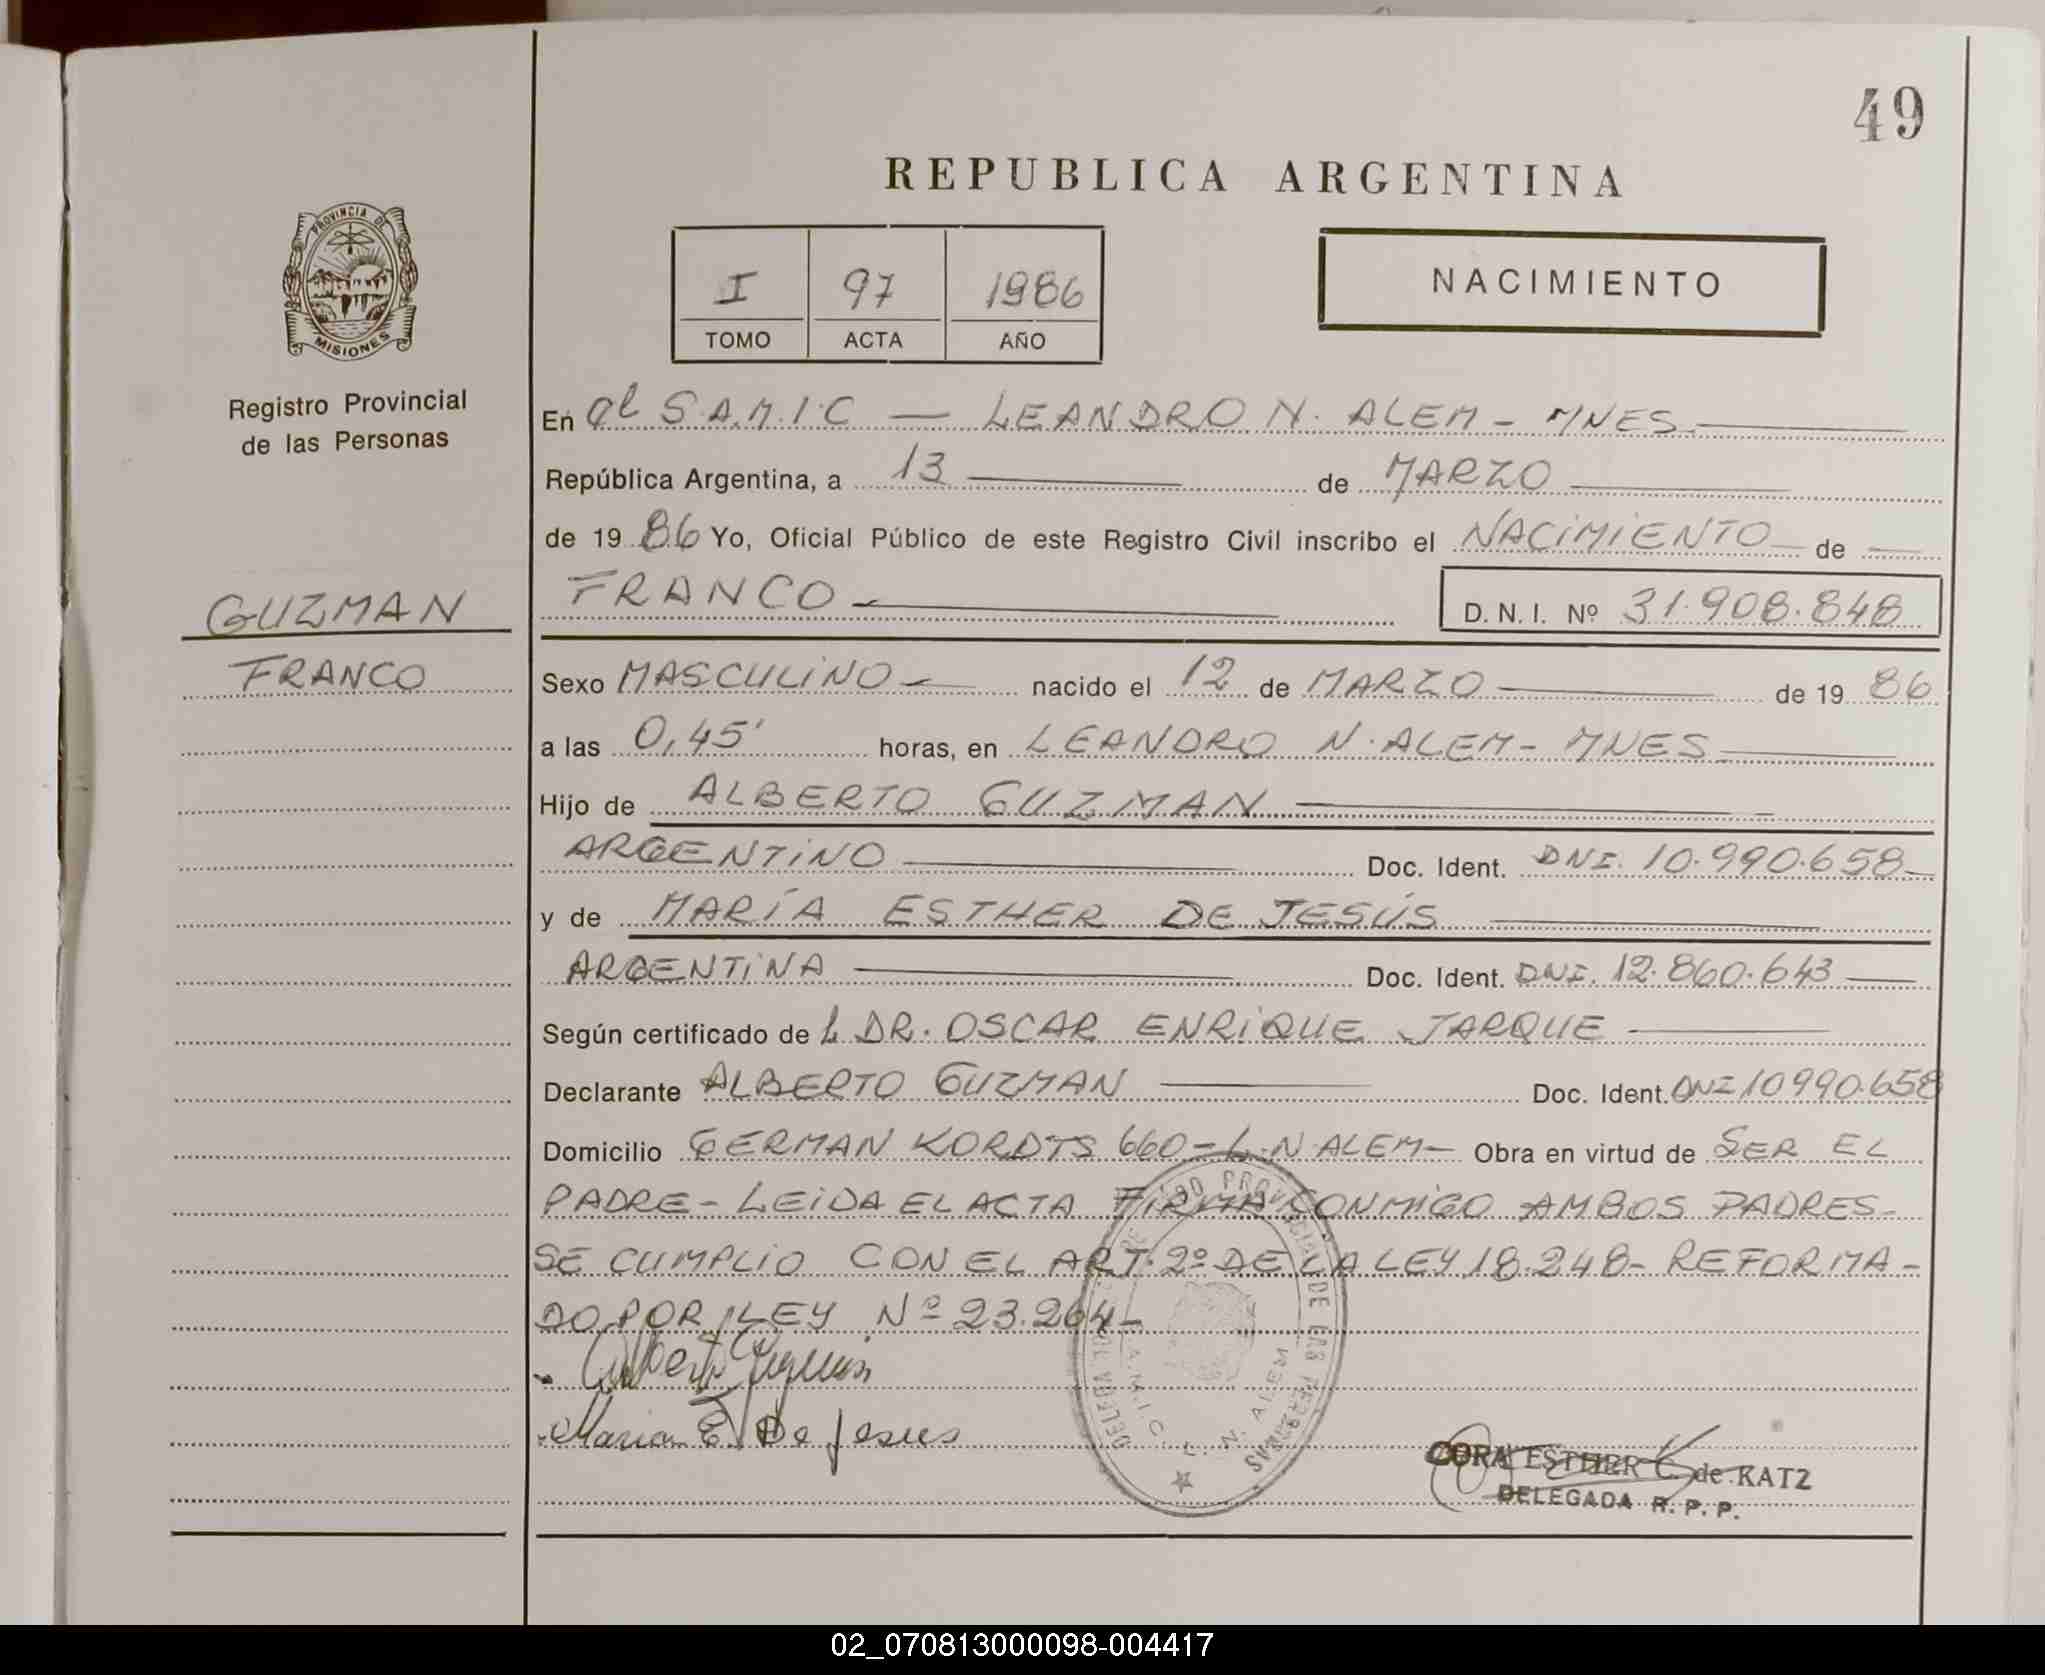 49
REPUBLICA ARGENTINA
PROVINCIA DE
MISIONES
Registro Provincial
de las Personas
I 97 1986
TOMO ACTA AÑO
NACIMIENTO
En el S.A.M.I.C — LEANDRO N. ALEM - MNES.
República Argentina, a 13 de MARZO
de 19 86 Yo, Oficial Público de este Registro Civil inscribo el NACIMIENTO de
GUZMAN
FRANCO
FRANCO
D. N. I. Nº 31.908.848
Sexo MASCULINO nacido el 12 de MARZO de 19 86
a las 0,45' horas, en LEANDRO N. ALEM - MNES
Hijo de ALBERTO GUZMAN
ARGENTINO Doc. Ident. DNI. 10.990.658
y de MARÍA ESTHER DE JESÚS
ARGENTINA Doc. Ident. DNI. 12.860.643
Según certificado de L DR. OSCAR ENRIQUE JARQUE
Declarante ALBERTO GUZMAN Doc. Ident. DNI 10990.658
Domicilio GERMAN KORDTS 660 - L.N. ALEM - Obra en virtud de SER EL
PADRE - LEIDA EL ACTA FIRMA CONMIGO AMBOS PADRES -
SE CUMPLIO CON EL ART. 2º DE LA LEY 18.248 - REFORMA -
DO POR LEY Nº 23.264 -
Alberto Guzman
Maria E. De Jesus
PROVINCIAL DE LAS PERSONAS
S.A.M.I.C. L. N. ALEM
CORA ESTHER C. de KATZ
DELEGADA R. P. P.
02_070813000098-004417